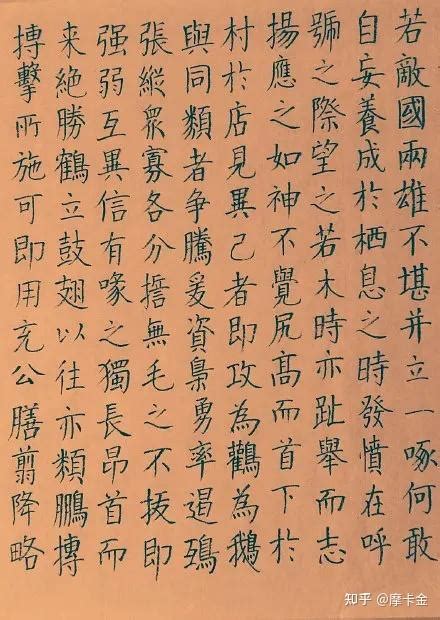 若敵國兩雄不堪并立一啄何敢
自妄養成於栖息之時發憤在呼
號之際望之若木時亦趾舉而志
揚應之如神不覺尻高而首下於
村於店見異己者即攻為鸛為鵝
與同類者争騰爰資梟勇率遏鴉
張縱眾寡各分誓無毛之不拔即
强弱互異信有喙之獨長昂首而
来絶勝鶴立鼓翅以往亦類鵬摶
搏擊所施可即用充公膳翦降略
知乎 @摩卡金